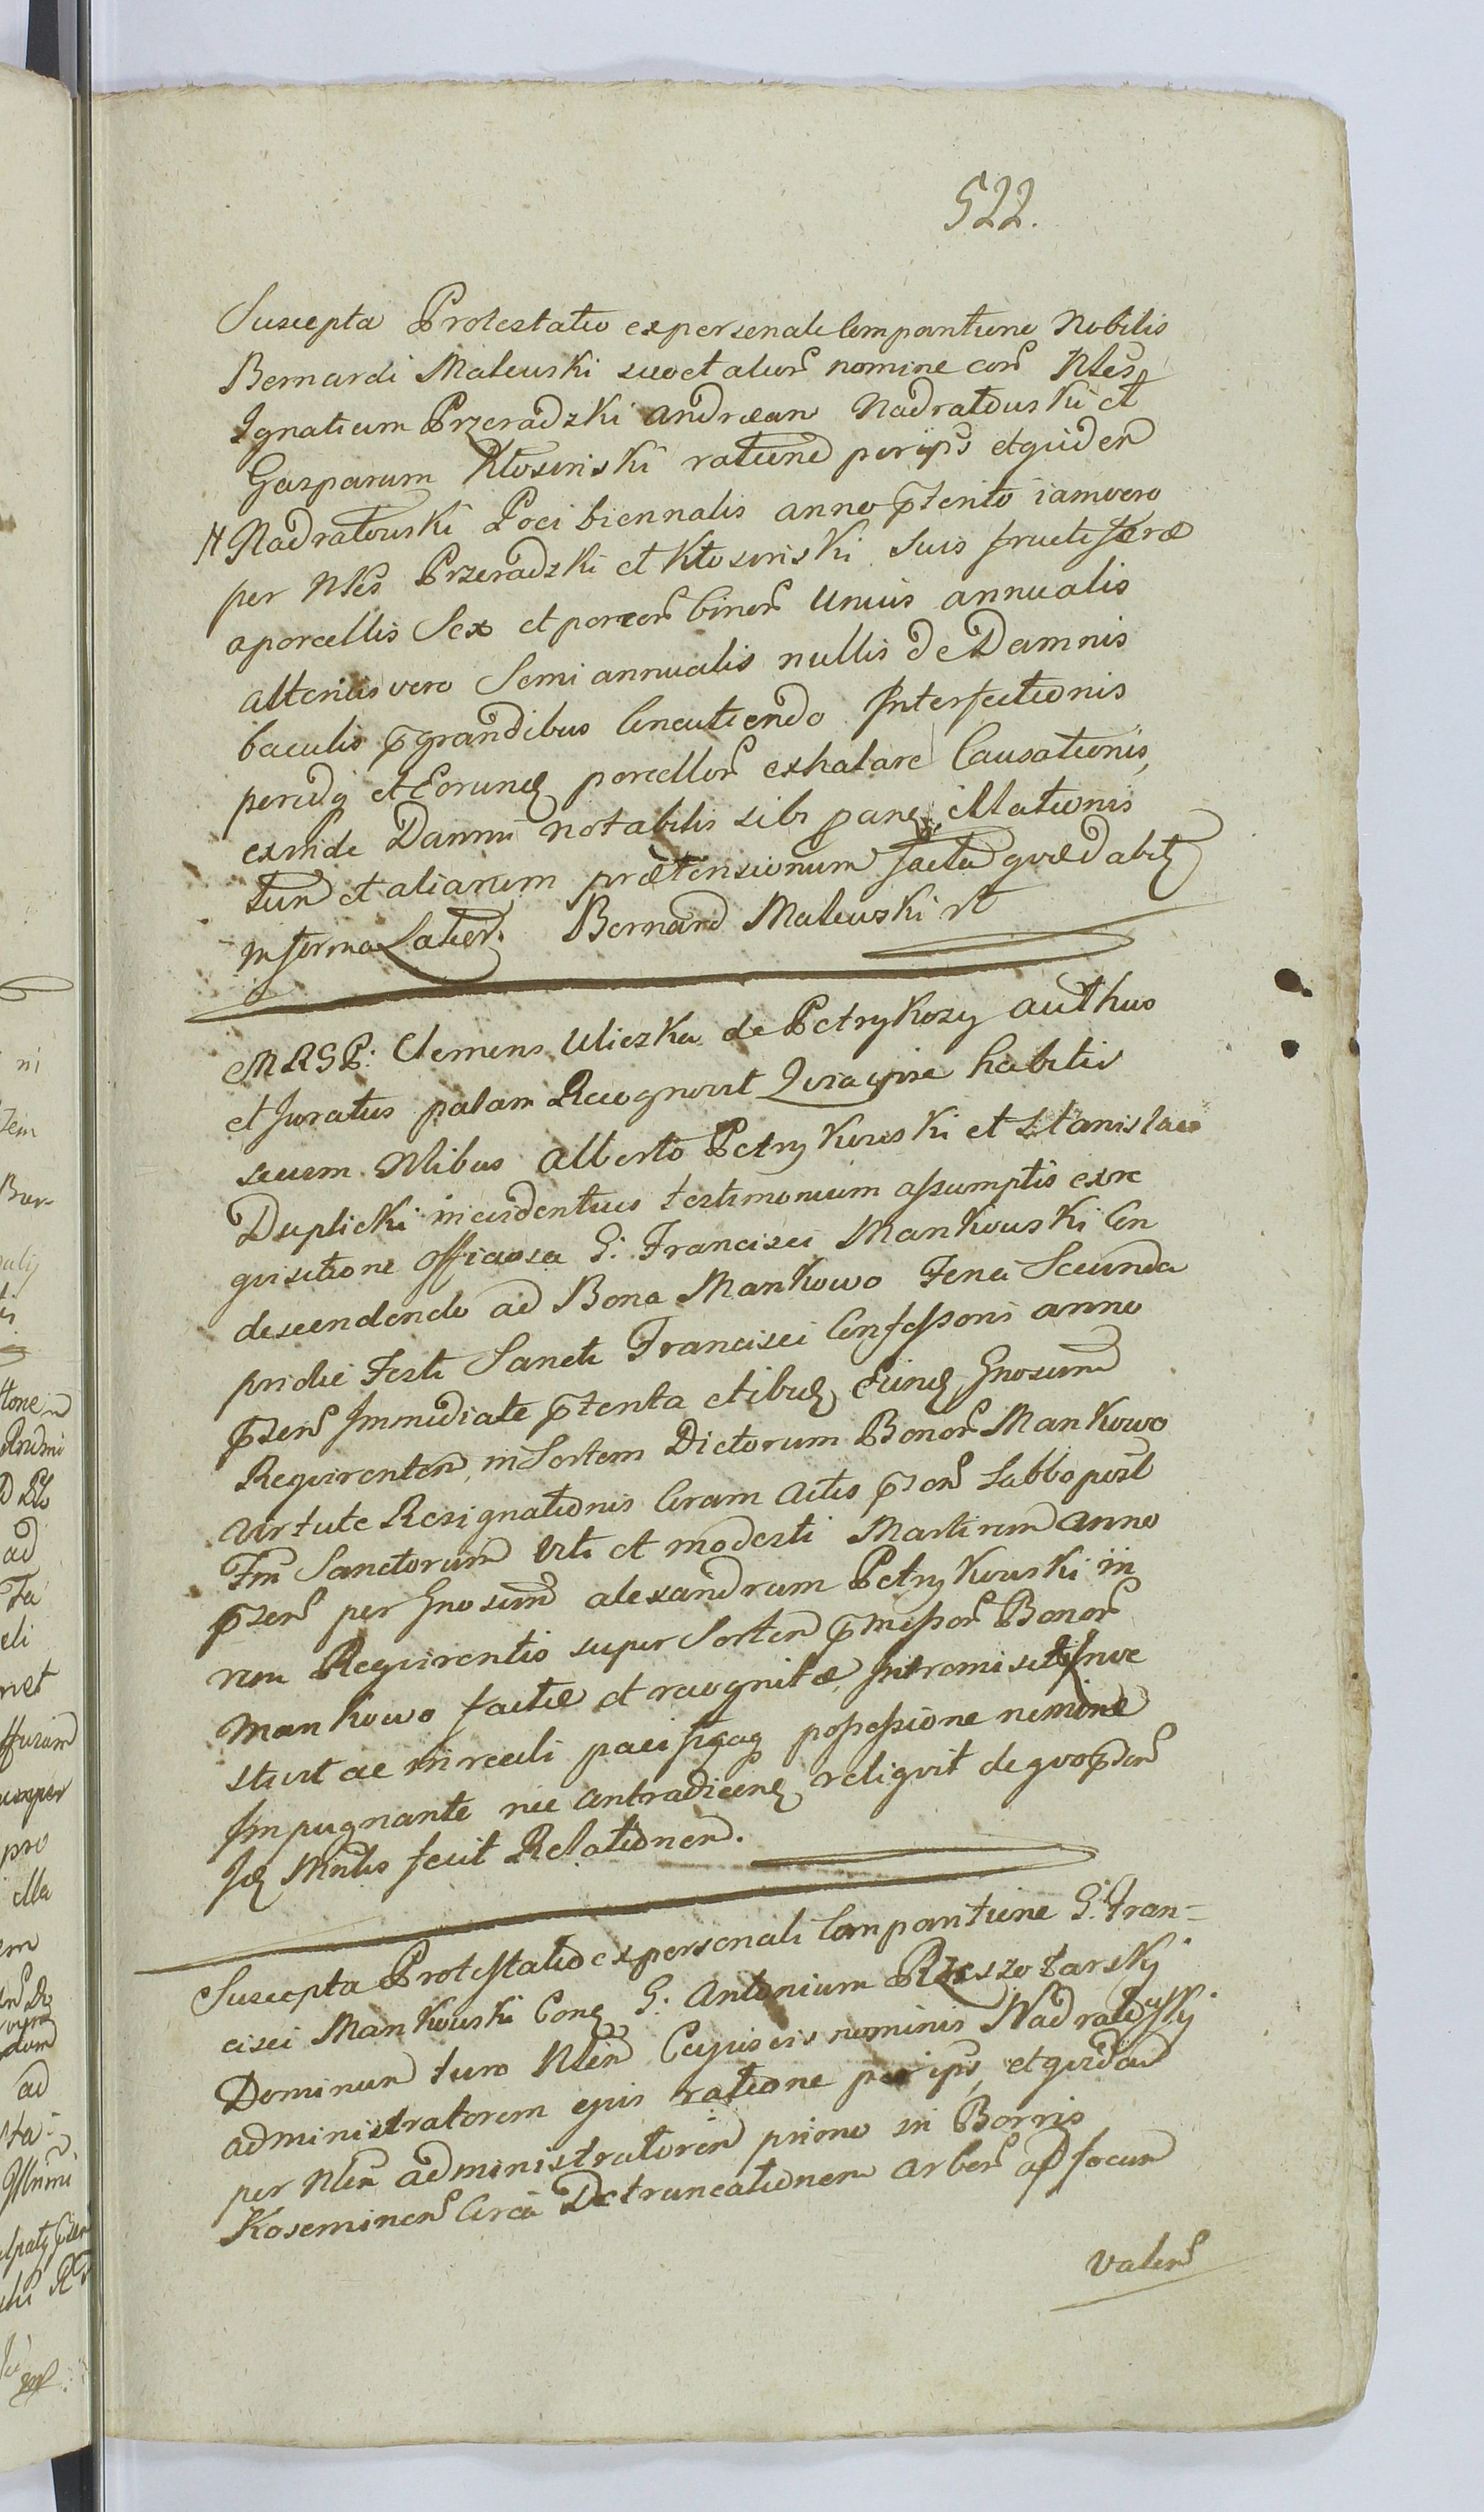 522.
Suscepta Protestatio ex personali Comparitione Nobilis
Bernardi Maleuski suo et alior nomine con Nles
Ignatium Przeradzki Andræam Nadratouski et
Gasparum Kłosinski ratione per ips et quidem
N Nadratouski Poci biennalis anno pterito iam vero
per Nles Przeradzki et Kłosinski Suis fructiferæ
a porcellis Sex et porcor binor Unius annualis
alterius vero Semi annualis nullis de Damnis
baculis pgrandibus Concutiendo Interfectionis
et Eorund porcellor exhalare Causationis,
exinde Damni notabilis sibi illationis
tum et aliarum prætensionum facta
in forma Latior. Bernard Maleuski rt
MRGP: Clemens Uliczka de Petrykozy authus
et Juratus palam Recognovit Quia ipse habitis
secum Nlibus Alberto Petrykouski et Stanislao
Duplicki in evidentius testimonium assumptis ex re
quisitione Officiosa G: Francisci Mankouski Con
descendendo ad Bona Mankowo Feria Secunda
pridie Festi Sancti Francisci Confessoris anno
pzen Immediate pterita et ibid Eund Gnosum
Requirentem in Sortem Dictorum Bonor Mankowo
Virtute Resignationis Coram Actis pzen Sabbo post
Fm Sanctorum Viti et modesti Martirum anno
pzen per Gnosum alexandrum Petrykouski in
rem Requirentis super Sortem pmissor Bonor
Mankowo factæ et recognitæ, Intromisit Inve
stivit ac in reali possessione nemine
Impugnante nec Contradicen reliquit de quo pzen
Id Minlis fecit Relationem.
Suscepta Protestatio ex personali Comparitione G: Fran=
cisci Mankouski Con G: Antonium Rzeszotarsky
Dominum tum Nlem Cujusvis nominis Nadratousky
administratorem ejus ratione per ips, et quidem
per Nlem administratorem primo in Borris
Koseminen Circa Detruncationem arbor ad focum
valen